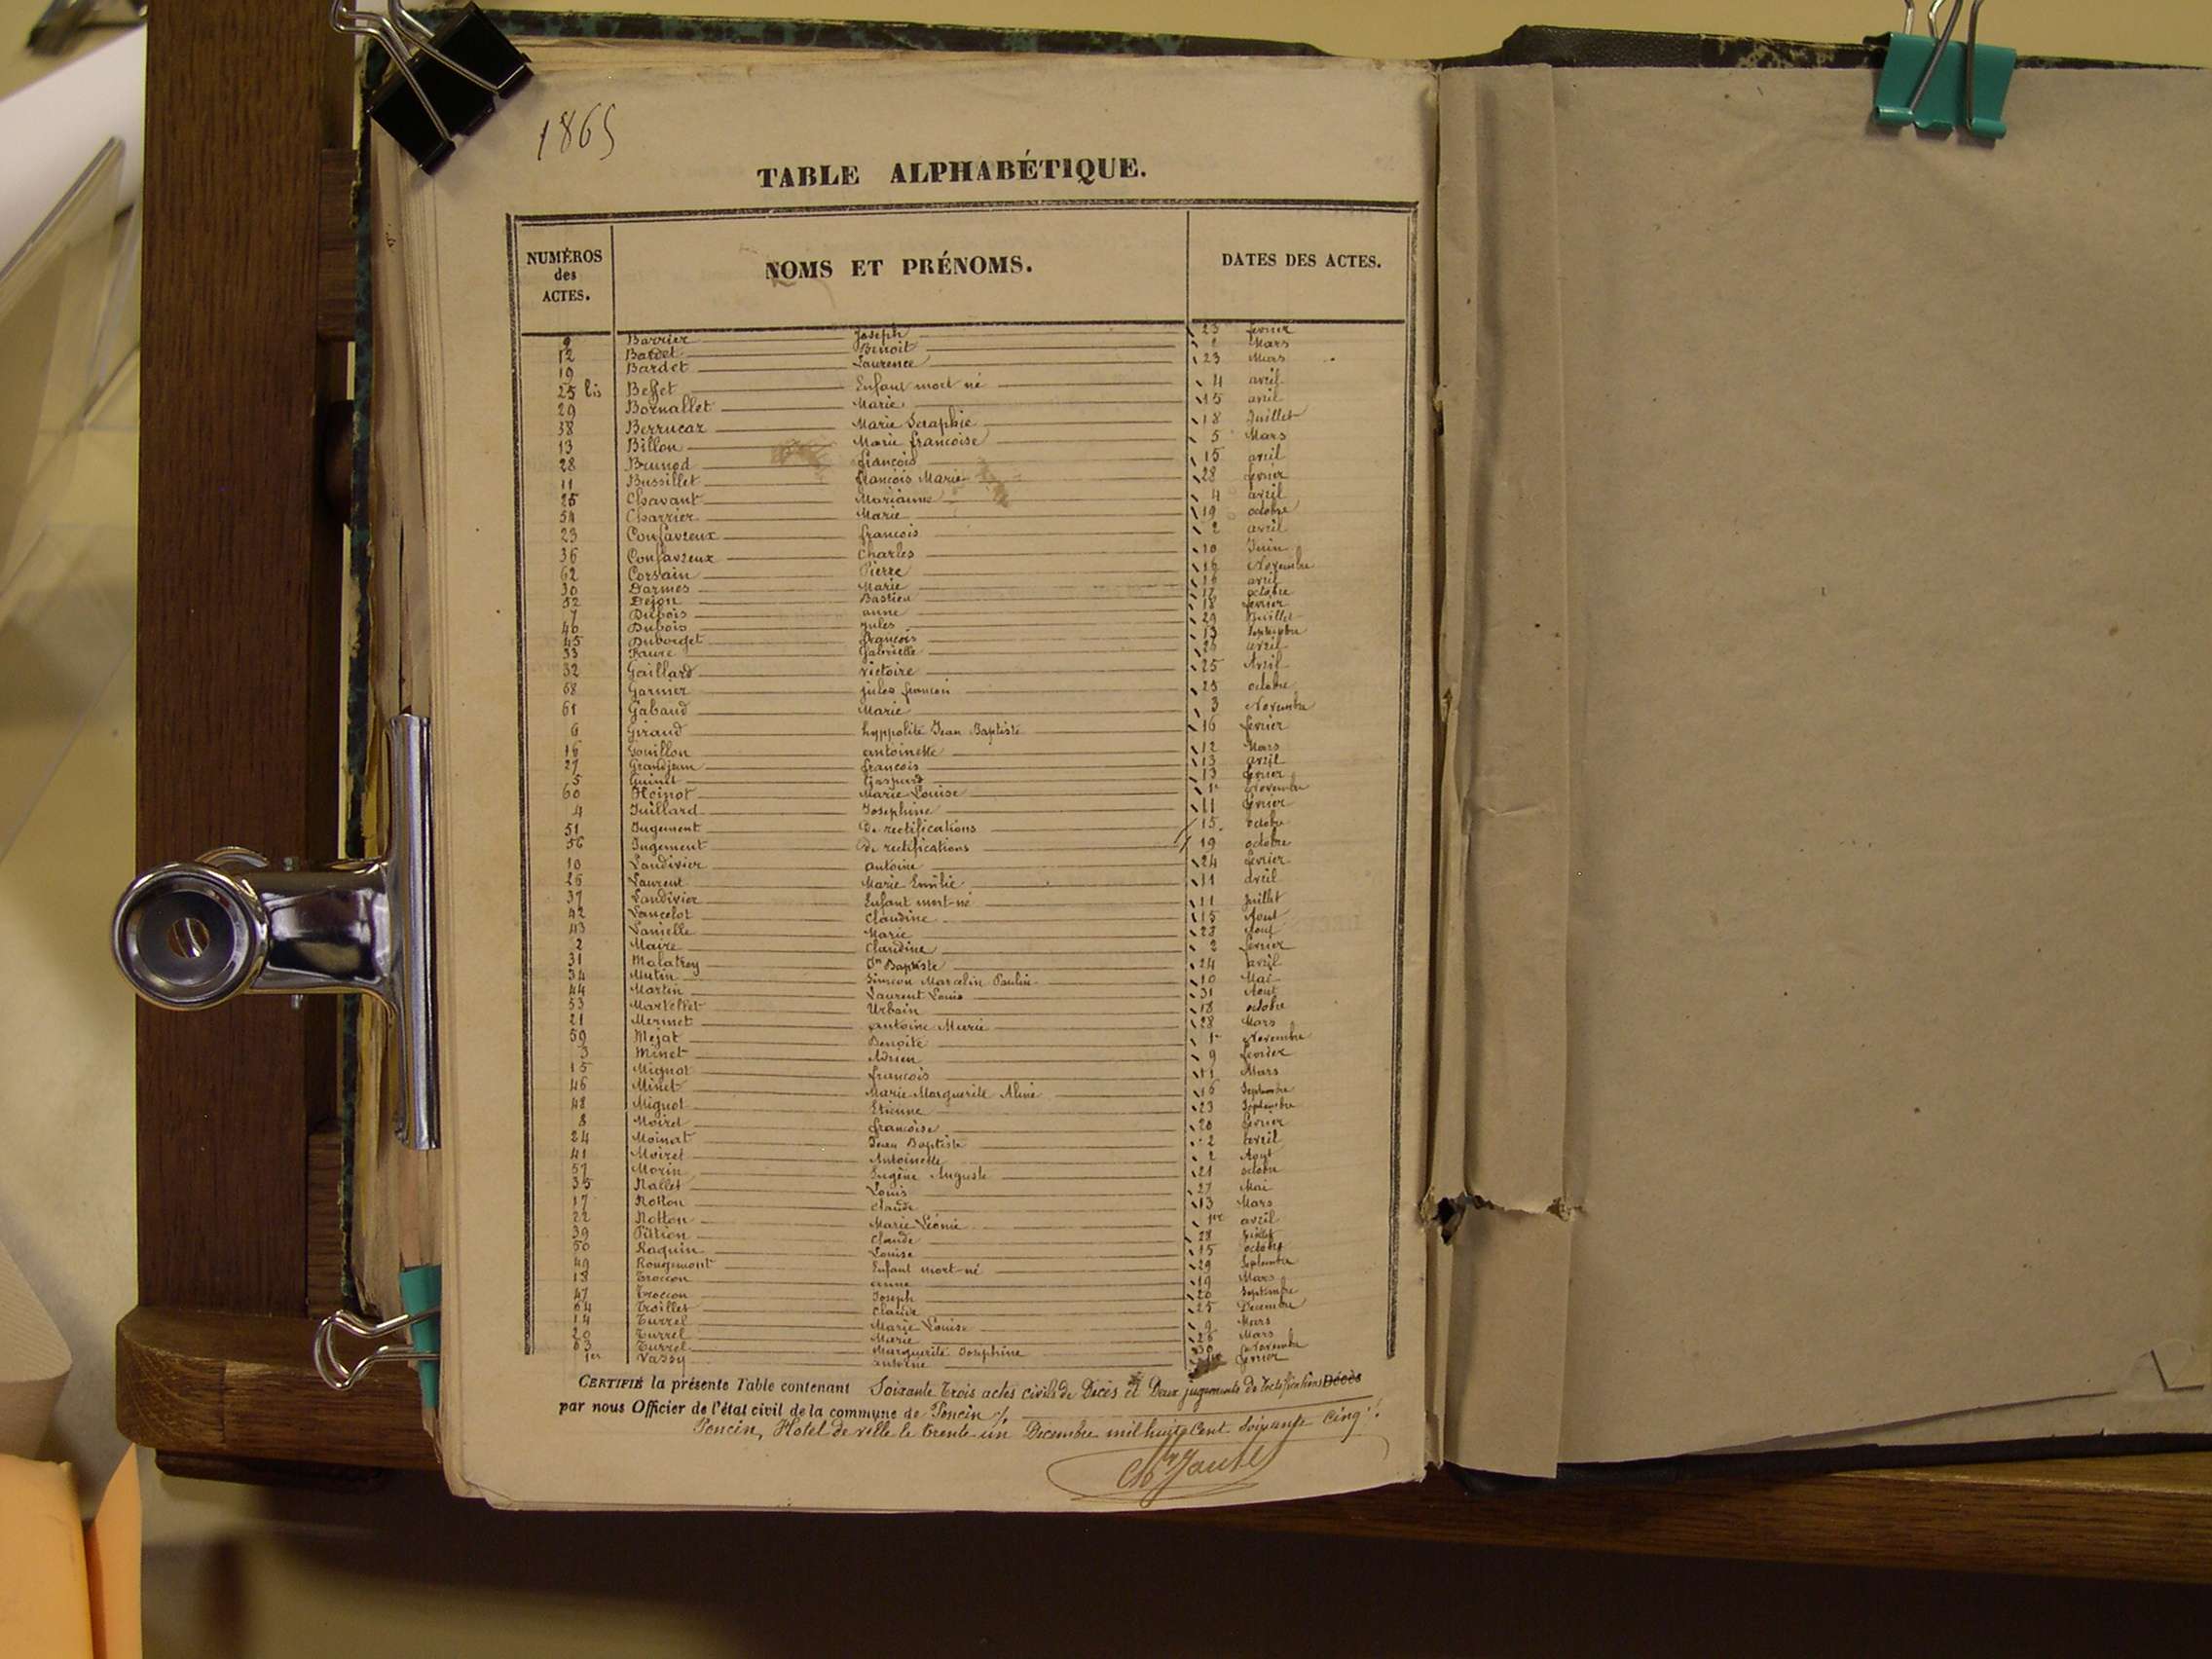 1865
TABLE ALPHABÉTIQUE.
NUMÉROS des ACTES. NOMS ET PRÉNOMS. DATES DES ACTES.
9 Barrier Joseph 23 février
12 Bardet Benoit 1 Mars
19 Bardet Laurence 23 Mars
25 bis Enfant mort né 4 avril
29 Bornallet Marie 15 avril
38 Berrucaz Marie Séraphie 18 Juillet
13 Billon Marie françoise 5 Mars
28 Brunod françois 15 avril
11 Bussillet françois Marie 28 février
25 Chavant Marianne 4 avril
54 Charrier Marie 19 octobre
23 Confavreux francois 2 avril
36 Confavreux Charles 10 Juin
62 Corsain Pierre 16 Novembre
30 Darmes Marie 16 avril
52 Dejon Bastien 17 octobre
7 Dubois anne 18 février
40 Dubois jules 29 Juillet
45 Duborget françois 13 Septembre
33 Favre Gabrielle 26 avril
32 Gaillard victoire 25 Avril
58 Garnier jules francois 23 octobre
61 Gabaud Marie 3 Novembre
6 Giraud hyppolite Jean Baptiste 16 fevrier
16 Gouillon antoinette 12 Mars
27 Grandjean francois 13 avril
5 Guinet Gaspard 13 fevrier
60 Hoinot Marie Louise 1er Novembre
4 Juillard Josephine 11 février
51 Jugement De rectifications 15 octobre
56 Jugement De rectifications 19 octobre
10 Landivier antoine 24 février
26 Laurent Marie Emilie 11 avril
37 Landivier Enfant mort-né 11 juillet
42 Lancelot Claudine 15 Aout
43 Lanielle Marie 23 Aout
2 Maire Claudine 2 fevrier
31 Malatrey Jn Baptiste 24 avril
34 Mutin Simeon Marcelin Paulin 10 Mai
44 Martin Laurent Louis 31 Aout
53 Martellet Urbain 18 octobre
21 Mermet antoine Marie 28 Mars
59 Mejat Benoite 1er Novembre
3 Minet Adrien 9 fevrier
15 Mignot francois 11 Mars
46 Minet Marie Marguerite Aline 16 Septembre
48 Mignot Etienne 23 Septembre
8 Moiret francoise 20 fevrier
24 Moinat Jean Baptiste 2 avril
41 Moiret Antoinette 2 Aout
57 Morin Eugène Auguste 21 octobre
35 Nallet Louis 27 Mai
17 Notton claude 13 Mars
22 Notton Marie Léonie 1er avril
39 Pition Claude 28 Juillet
50 Raquin Louise 15 octobre
49 Rougemont Enfant mort-né 29 Septembre
18 Troccon anne 19 Mars
47 Troccon Joseph 20 Septembre
64 Troillet Claude 25 Decembre
14 Turrel Marie Louise 9 Mars
20 Turrel Marie 26 Mars
63 Turrel Marguerite Josephine 30 Novembre
1er Vassy antoine fevrier
CERTIFIÉ la présente Table contenant Soixante Trois actes civils de Décès et Deux jugements de rectifications Décès
par nous Officier de l'état civil de la commune de Poncin
Poncin, Hotel de ville le trente un Decembre mil huit Cent Soixante Cinq.